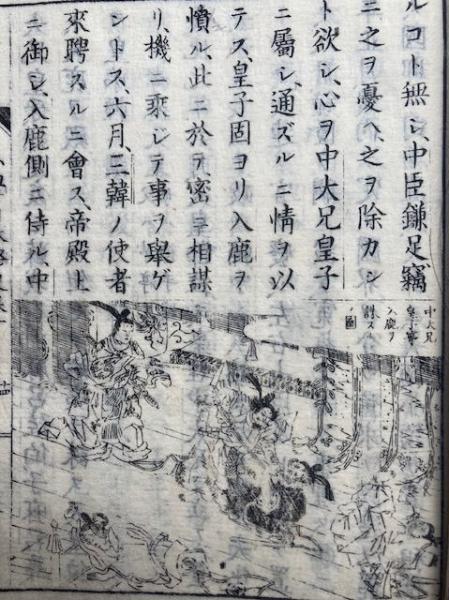 ルコト無シ、中臣鎌足竊
ニ之ヲ憂へ、之ヲ除カン
ト欲シ、心ヲ中大兄皇子
ニ屬シ、通ズルニ情ヲ以
テス、皇子固ヨリ入鹿ヲ
憤ル、此ニ於テ、密ニ相謀
リ、機ニ乘ジテ事ヲ擧ゲ
ントス、六月、三韓ノ使者
來聘スルニ會ス、帝殿上
ニ御シ、入鹿側ニ侍ル、中
中大兄
皇子
入鹿ヲ
誅スル
ノ圖